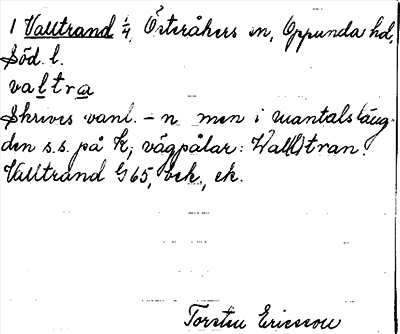 1 Valltrand ¼, Österåkers sn, Oppunda hd,
Söd. l.
valtra
Skrives vanl. -n men i mantalsläng-
den s.s. på K; vägpålar: Wal(l)tran.
Valltrand G65, bek., ek.
Torsten Ericsson